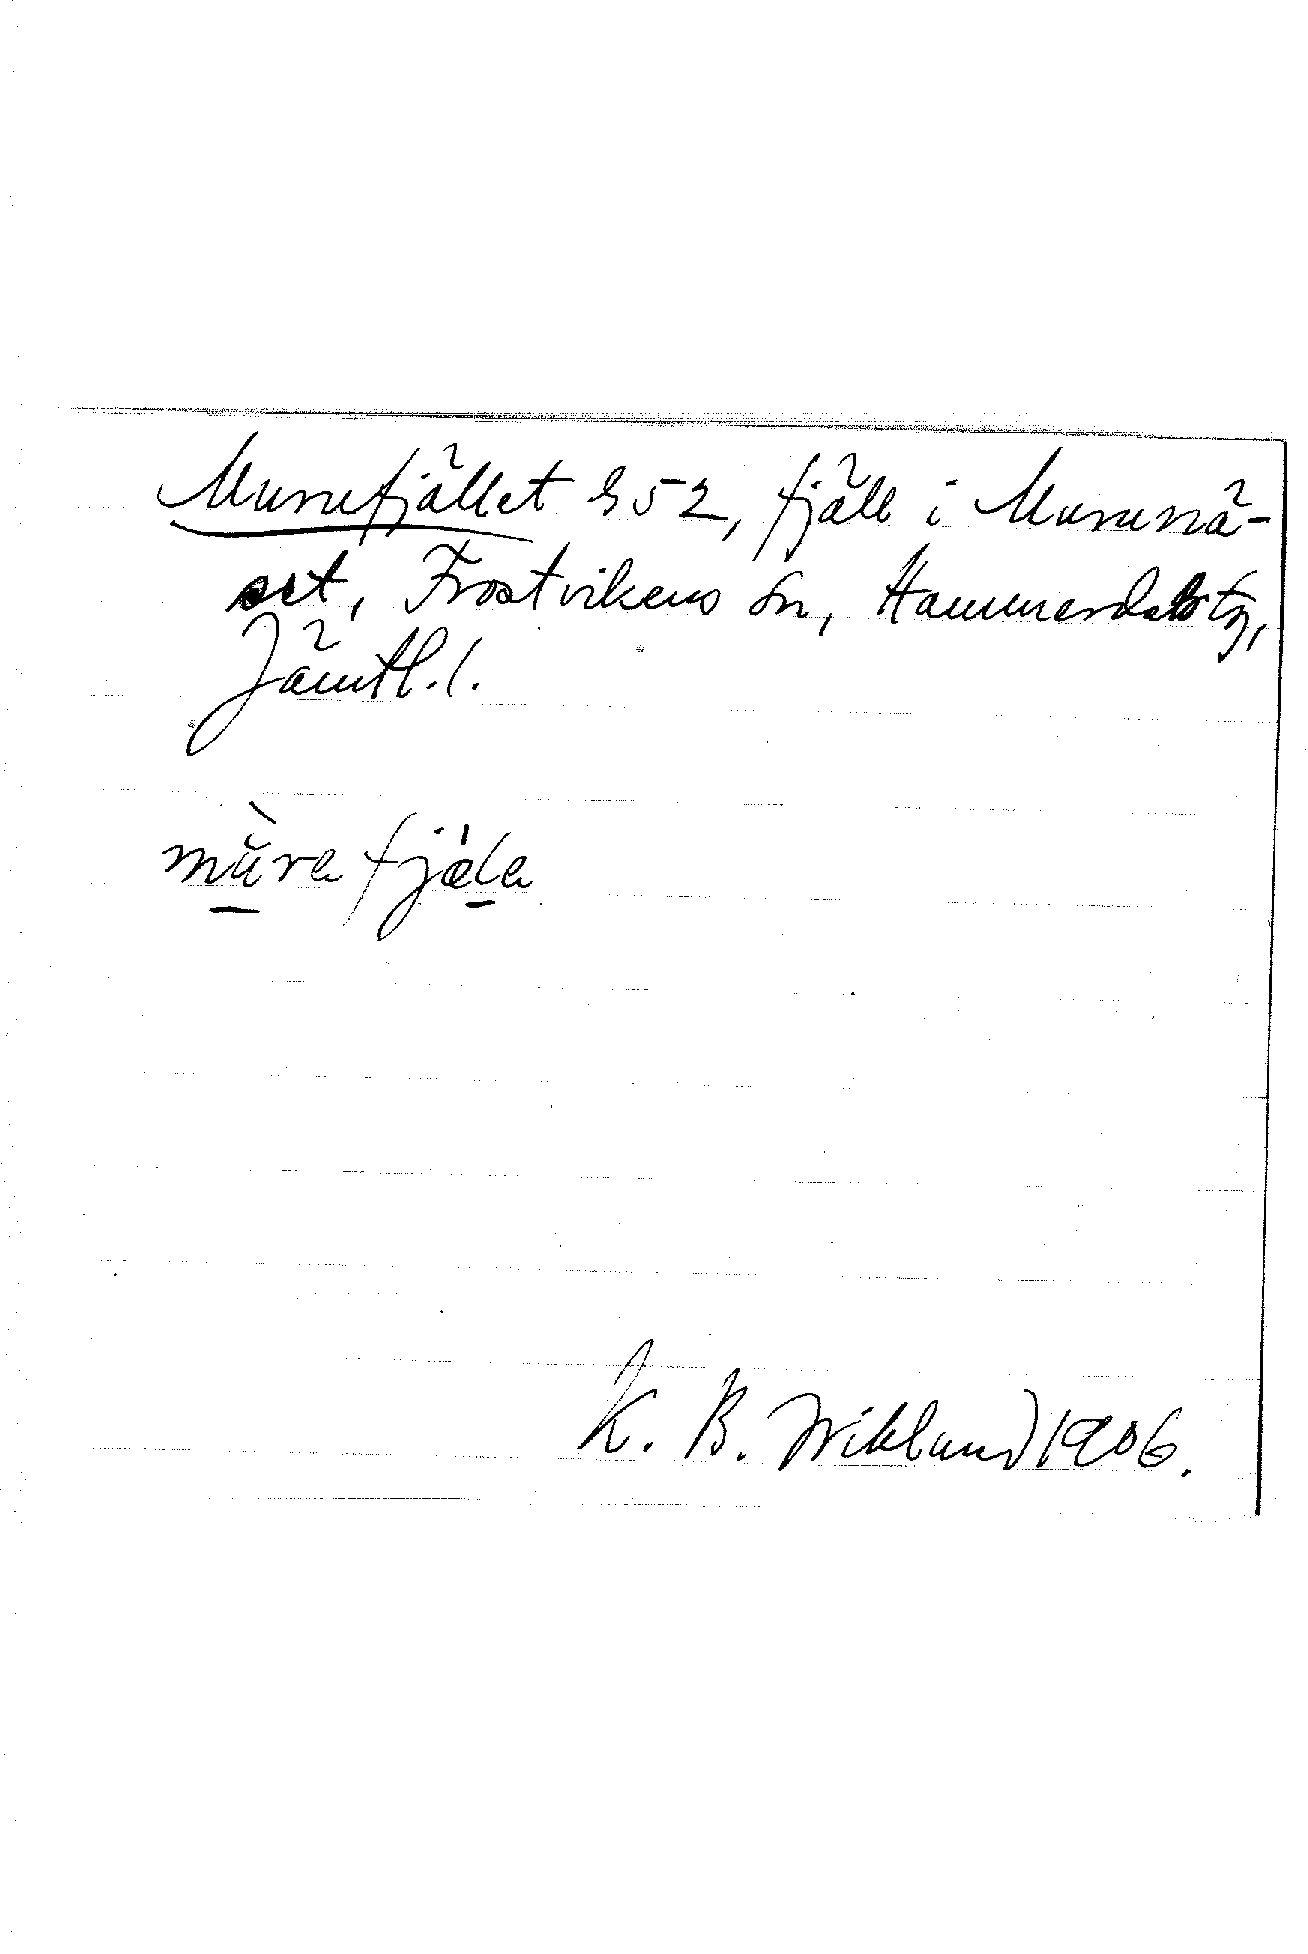 Murufjället 852, fjäll i Murunä-
set, Frostvikens sn, Hammerdals tg,
Jämtl. l.
K. B. Wiklund 1906.